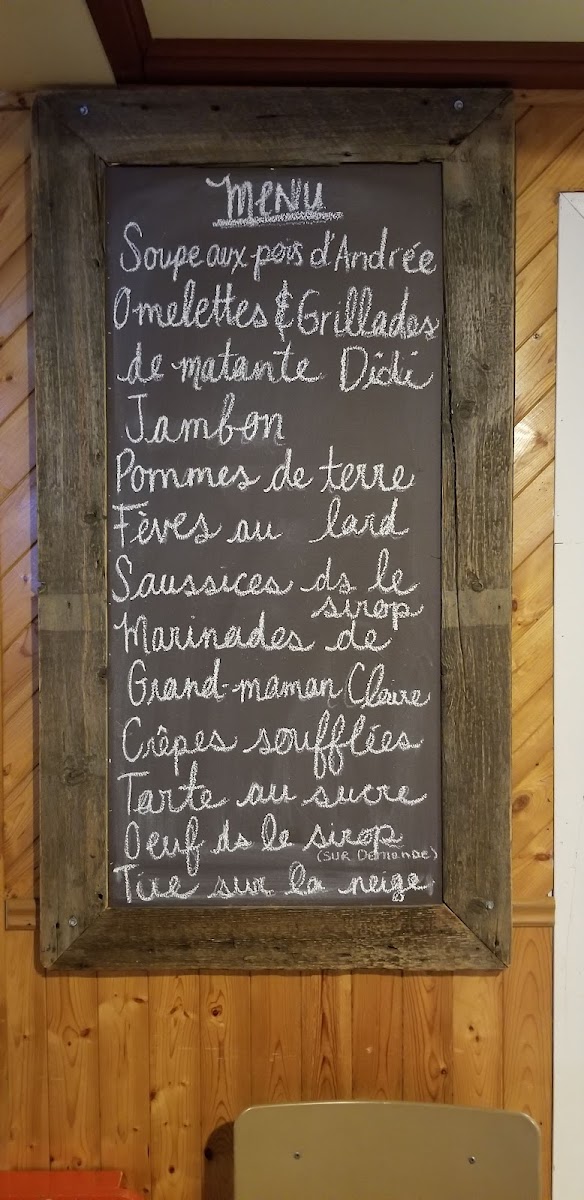 MENU
Soupe aux pois d'Andrée
Omelettes & Grillades
de matante Didi
Jambon
Pommes de terre
Fèves au lard
Saussices ds le
sirop
Marinades de
Grand-maman Claire
Crêpes soufflées
Tarte au sucre
Oeuf ds le sirop
(SUR Demande)
Tire sur la neige